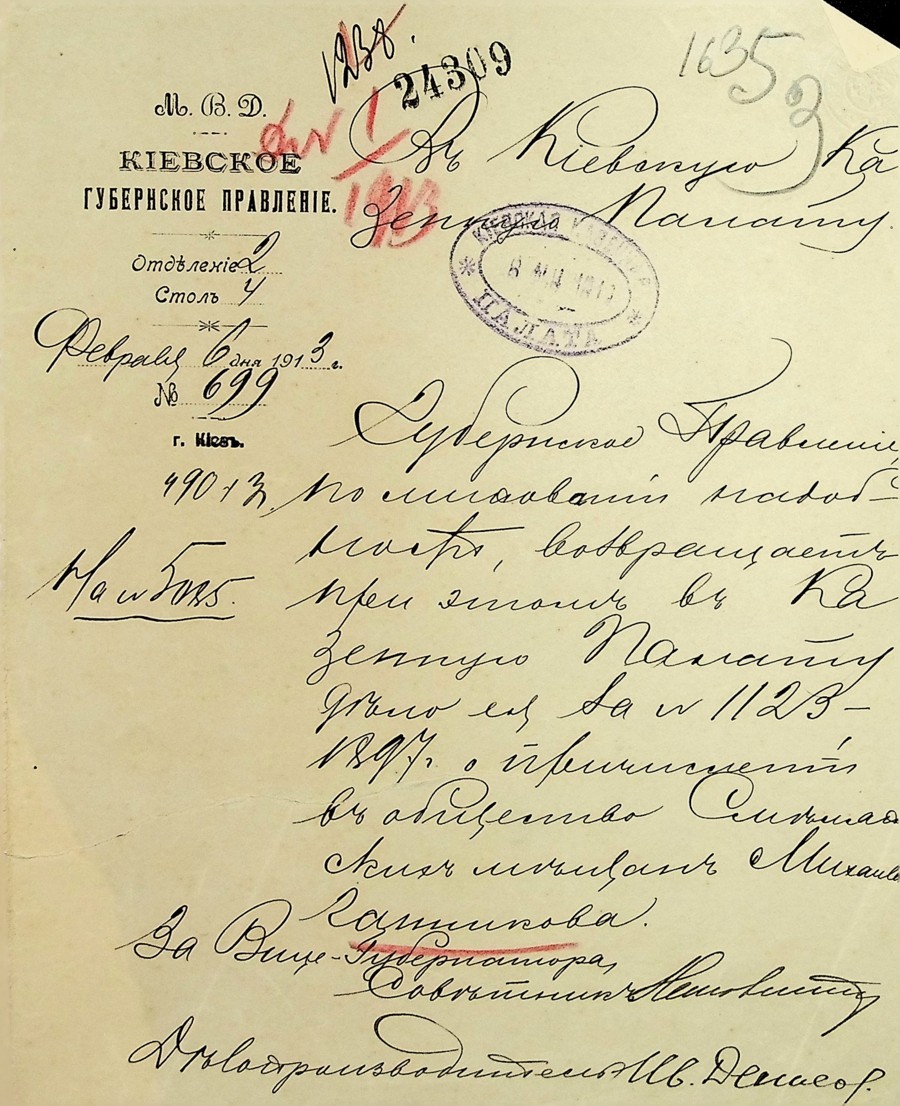 1238.
24309
1635
3
М. В. Д.
КІЕВСКОЕ
ГУБЕРНСКОЕ ПРАВЛЕНІЕ.
Отдѣленіе 2
Столъ 4
Февраля 6 дня 1913 г.
№ 699
г. Кіевъ.
На № 5035.
1
1913
Въ Кіевскую Ка
зенную Палату.
КІЕВСКАЯ КАЗЕННАЯ
8 1913
ПАЛАТА
Губернское Правленіе,
по минованіи надоб-
ности, возвращаетъ
при этомъ въ Ка
зенную Палату
дѣло ея за № 1123-
1897 г. о причисленіи
въ общество
скихъ мѣщанъ Михаила
За Вице-Губернатора,
Совѣтникъ
Дѣлопроизводитель